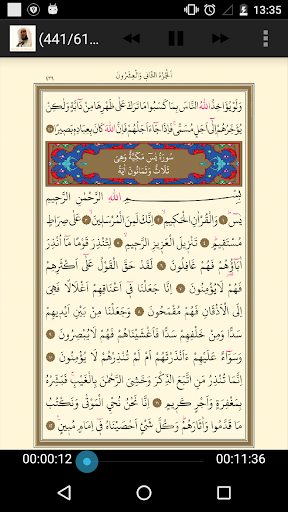 13:35
(441/61...
اَلْجُزْءُ الثَّانِي وَالْعِشْرُونَ
٤٣٩
وَلَوْ يُؤَاخِذُ اللهُ النَّاسَ بِمَا كَسَبُوا مَا تَرَكَ عَلٰى ظَهْرِهَا مِنْ دَٓابَّةٍ وَلٰكِنْ
يُؤَخِّرُهُمْ اِلٰٓى اَجَلٍ مُسَمًّى فَاِذَا جَٓاءَ اَجَلُهُمْ فَاِنَّ اللهَ كَانَ بِعِبَادِهٖ بَصٖيرًا
سُورَةُ يٰسٓ مَكِّيَّةٌ وَهِيَ
ثَلَاثٌ وَثَمَانُونَ اٰيَةً
بِسْمِ اللهِ الرَّحْمٰنِ الرَّحٖيمِ
يٰسٓ وَالْقُرْاٰنِ الْحَكٖيمِ اِنَّكَ لَمِنَ الْمُرْسَلٖينَ عَلٰى صِرَاطٍ
مُسْتَقٖيمٍ تَنْزٖيلَ الْعَزٖيزِ الرَّحٖيمِ لِتُنْذِرَ قَوْمًا مَٓا اُنْذِرَ
اٰبَٓاؤُهُمْ فَهُمْ غَافِلُونَ لَقَدْ حَقَّ الْقَوْلُ عَلٰٓى اَكْثَرِهِمْ
فَهُمْ لَا يُؤْمِنُونَ اِنَّا جَعَلْنَا فٖٓي اَعْنَاقِهِمْ اَغْلَالًا فَهِيَ
اِلَى الْاَذْقَانِ فَهُمْ مُقْمَحُونَ وَجَعَلْنَا مِنْ بَيْنِ اَيْدٖيهِمْ
سَدًّا وَمِنْ خَلْفِهِمْ سَدًّا فَاَغْشَيْنَاهُمْ فَهُمْ لَا يُبْصِرُونَ
وَسَوَٓاءٌ عَلَيْهِمْ ءَاَنْذَرْتَهُمْ اَمْ لَمْ تُنْذِرْهُمْ لَا يُؤْمِنُونَ
اِنَّمَا تُنْذِرُ مَنِ اتَّبَعَ الذِّكْرَ وَخَشِيَ الرَّحْمٰنَ بِالْغَيْبِ فَبَشِّرْهُ
بِمَغْفِرَةٍ وَاَجْرٍ كَرٖيمٍ اِنَّا نَحْنُ نُحْيِ الْمَوْتٰى وَنَكْتُبُ
مَا قَدَّمُوا وَاٰثَارَهُمْ وَكُلَّ شَيْءٍ اَحْصَيْنَاهُ فٖٓي اِمَامٍ مُبٖينٍ
00:00:12
00:11:36